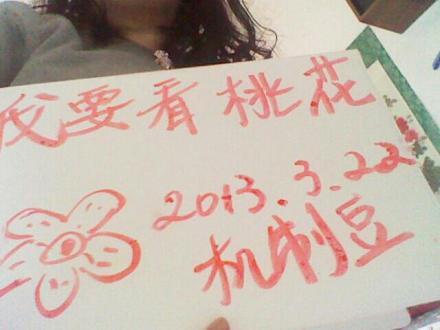 我要看桃花
2013.3.22
机制豆